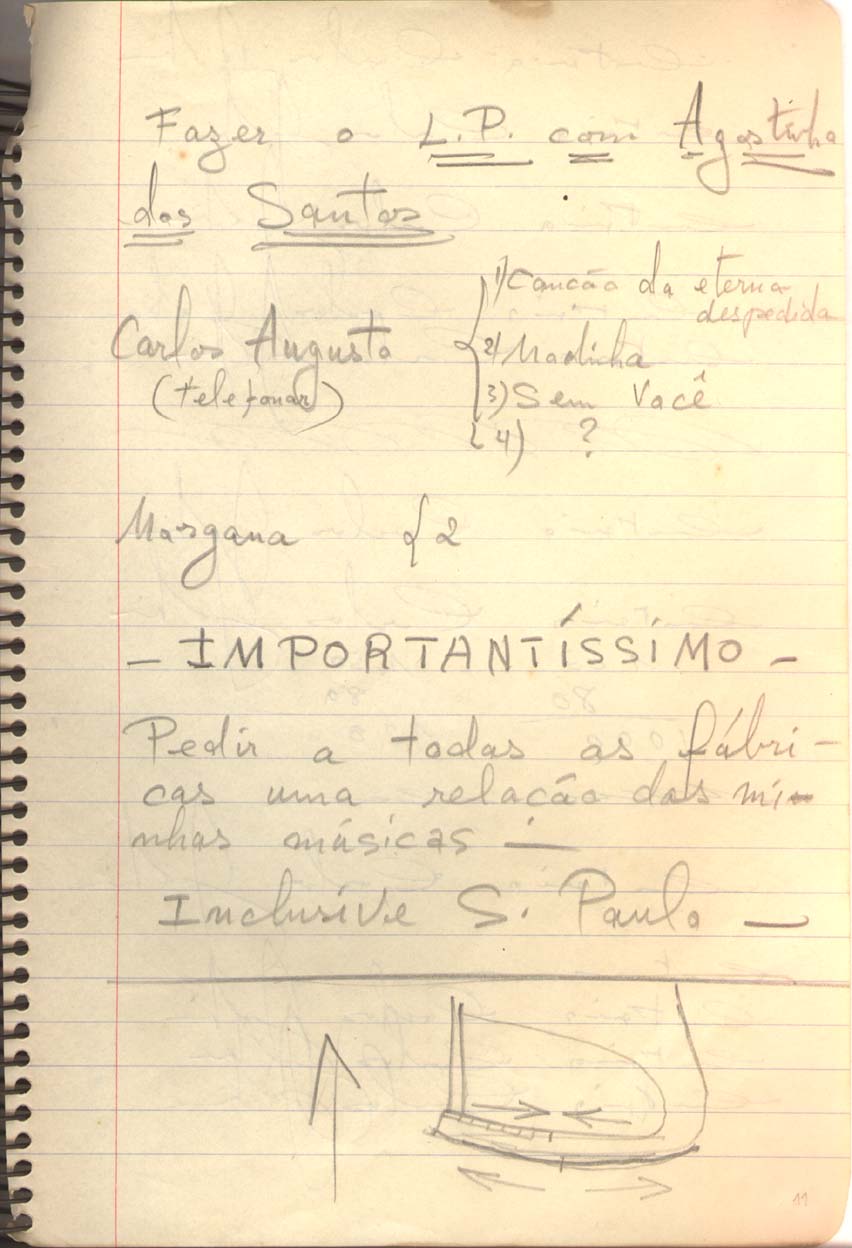 Fazer o L.P. com Agostinho
dos Santos
Carlos Augusto
(telefonar)
1) Canção da eterna
despedida
2) Modinha
3) Sem Você
4) ?
Morgana { 2
- IMPORTANTÍSSÍMO -
Pedir a todas as fábri-
cas uma relação das mi-
nhas músicas -
Inclusive S. Paulo -
11